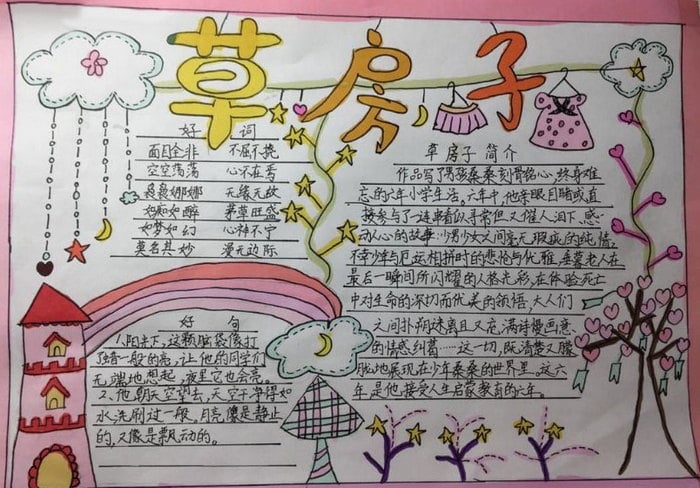 草房子
好 词
面目全非 不屈不挠
空空荡荡 心不在焉
袅袅娜娜 无缘无故
如痴如醉 茅草旺盛
如梦如幻 心神不宁
莫名其妙 漫无边际
好 句
1、阳光下,这颗脑袋像打
了蜡一般的亮,让他的同学们
无端地想起,夜里它也会亮。
2、他朝天空望去,天空干净得如
水洗刷过一般,月亮像是静止
的,又像是飘动的。
草房子 简介
作品写了男孩桑桑刻骨铭心,终身难
忘的六年小学生活。六年中,他亲眼目睹或直
接参与了一连串看似寻常但又催人泪下、感
动人心的故事:少男少女之间毫无瑕疵的纯情,
不幸少年与厄运相拼时的悲怆与优雅,垂暮老人在
最后一瞬间所闪耀的人格光彩,在体验死亡
中对生命的深切而优美的领悟,大人们
之间扑朔迷离且又充满诗情画意
的情感纠葛……这一切,既清楚又朦
胧地展现在少年桑桑的世界里。这六
年,是他接受人生启蒙教育的六年。